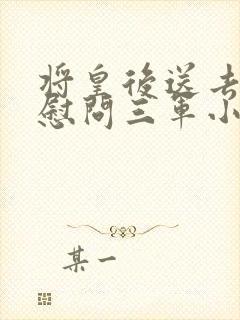 将皇後送去
慰問三軍小
某一